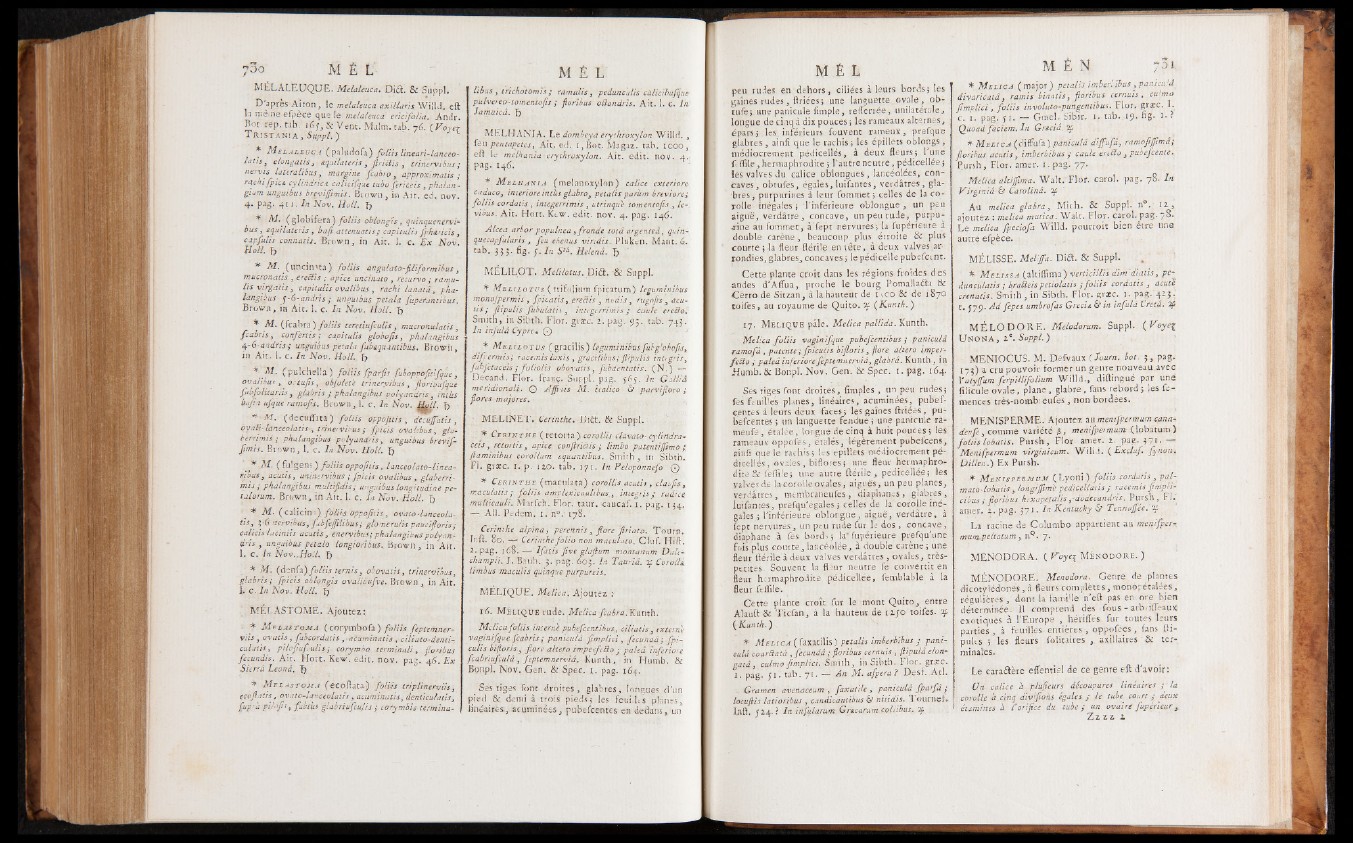 730 M É L
MÉLALEUQUE. Melaleuca. Dict. & Suppl.
D'après Aiton, le melaleuca axillaris Willd. est
la même espèce que le melaleuca ericifolia. Andr.
Bot rep. tab. 165, & Vent. Malm. tab. 76. (Voyez
TRISTANIA, Suppl.)
* MELALEUCA (paludosa) foliis lineari-lanceo-
latis, elongatis, æquilateris, strictis, trinervibus;
nervis lateralibus, margine scabro, approximatis;
rachi spicæ cylindricæ calicisque tubo sericeis, phalan-
gium unguibus brevissimis. Brown, in Ait. ed. nov.
4. pag. 411. In Nov. Holl. ♄
* M. (globifera) foliis oblongis, quinquenervi-
bus, æquilateris, basi attenuatis; capitulis sphæricis,
capsulis connatis. Brown, in Ait. l. c. Ex Nov.
Holl. ♄
* M. (uncinata) foliis angulato-filiformibus,
mucronatis, erectis; apice uncinato, recurvo; ramu-
lis virgatis, capitulis ovalibus, rachi lanatâ, pha-
langibus 5-6-andris; unguibus petala superantibus.
Brown, in Ait. l. c. In Nov. Holl. ♄
* M. (scabra) foliis teretiusculis, mucronulatis,
scabris, confertis; capitulis globosis, phalangibus
4-6-andris; unguibus petala subæquantibus. Brown,
in Ait. l. c. In Nov. Holl. ♄
* M. (pulchella) foliis sparsis suboppositisque,
ovalibus, obtusis, obsoletè trinervibus, floribusque
subsolitariis, glabris; phalangibus polyandris, intùs
basin usque ramosis. Brown, l. c. In Nov. Holl. ♄
* M. (decussata) foliis oppositis, decussatis,
ovali-lanceolatis, trinervibus; spicis ovalibus, gla-
berrimis; phalangibus polyandris, unguibus brevis-
simis. Brown, l. c. In Nov. Holl. ♄
* M. (fulgens) foliis oppositis, lanceolato-linea-
ribus, acutis, uninervibus; spicis ovalibus, glaberri-
mis; phalangibus multifidis; unguibus longitudine pe-
talorum. Brown, in Ait. l. c. In Nov. Holl. ♄
* M. (calicina) foliis oppositis, ovato-lanceola-
tis, 3-6 nervibus, subsessilibus; glomerulis paucifloris;
calicis laciniis acutis, enervibus; phalangibus polyan-
dris, unguibus petalo longioribus. Brown, in Ait.
l. c. In Nov. Holl. ♄
* M. (densa) foliis ternis, obovatis, trinervibus,
glabris; spicis oblongis ovalibusve. Brown, in Ait.
l. c. In Nov. Holl. ♄
MÉLASTOME. Ajoutez:
* MELASTOMA (corymbosa) foliis septemner-
viis, ovatis, subcordatis, acuminatis, ciliato-denti-
culatis, pilosiusculis; corymbo terminali, floribus
secundis. Ait. Hort. Kew. edit. nov. pag. 46. Ex
Sierrâ Leonâ. ♄
* MELASTOMA (ecostata) foliis triplinerviis,
ecostatis, ovato-lanceolatis, acuminatis, denticulatis,
suprà pilosis, subtùs glabriusculis; corymbis termina-
M É L
libus, trichotomis; ramulis, pedunculis calicibusque
pulvereo-tomentosis; floribus octandris. Ait. l. c. In
Jamaicâ. ♄
MELHANIA. Le dombeya erythroxylon Willd.,
seu pentapetes, Ait. ed. 1, Bot. Magaz. tab. 1000,
est le melhania erythroxylon. Ait. edit. nov. 4.
pag. 146.
* MELHANIA (melanoxylon) calice exteriore
caduco, interiore intùs glabro, petalis parùm breviore;
foliis cordatis, integerrimis, utrinquè tomentosis, le-
vibus. Ait. Hort. Kew. edit. nov. 4. pag. 146.
Alcea arbor populnea, fronde totâ argenteâ, quin-
quecapsularis, seu ebenus viridis. Pluken. Mant. 6.
tab. 333. fig. 3. In Stâ. Helenâ. ♄
MÉLILOT. Melilotus. Dict. & Suppl.
* MELILOTUS (trifolium spicatum) leguminibus
monospermis, spicatis, erectis, nudis, rugosis, acu-
tis; stipulis subulatis, integerrimis; caule erecto.
Smith, in Sibth. Flor. græc. 2. pag. 93. tab. 743.
In insulâ Cypro. ☉
* MELILOTUS (gracilis) leguminibus subglobosis,
dispermis; racemis laxis, gracilibus; stipulis integris,
subsetaceis; foliolis obovatis, subdentatis. (N.) —
Decand. Flor. franç. Suppl. pag. 565. In Galliâ
meridionali. ☉ Affinis M. italico & parvifloro;
flores majores.
MELINET. Cerinthe. Dict. & Suppl.
* CERINTHE (retorta) corollis clavato-cylindra-
ceis, retortis, apice constrictis; limbo patentissimo;
staminibus corollam æquantibus. Smith, in Sibth.
Fl. græc. 1. p. 120. tab. 171. In Peloponneso ☉
* CERINTHE (maculata) corollis acutis, clausis,
maculatis; foliis amplexicaulibus, integris; radice
multicauli. Marsch. Flor. taur. caucas. 1. pag. 134.
— All. Pedem. 1. n°. 178.
Cerinthe alpina, perennis, flore striato. Tourn.
Inst. 80. — Cerinthe folio non maculato. Clus. Hist.
2. pag. 168. — Isatis sive glastum montanum Dale-
champii. J. Bauh. 3. pag. 603. In Tauriâ. ♃ Corollæ
limbus maculis quinque purpureis.
MÉLIQUE. Melica. Ajoutez:
16. MÉLIQUE rude. Melica scabra. Kunth.
Melica foliis internè pubescentibus, ciliatis, externè
vaginisque scabris; paniculâ simplici, secundâ; spi-
culis bifloris, flore altero imperfecto; paleâ inferiore
scabriusculâ, septemnerviâ. Kunth, in Humb. &
Bonpl. Nov. Gen. & Spec. 1. pag. 164.
Ses tiges sont droites, glabres, longues d'un
pied & demi à trois pieds; les feuilles planes,
linéaires, acuminées, pubescentes en dedans, un
M É L
peu rudes en dehors, ciliées à leurs bords; les
gaînes rudes, striées; une languette ovale, ob-
tuse; une panicule simple, resserrée, unilatérale,
longue de cinq à dix pouces; les rameaux alternes,
épars; les inférieurs souvent rameux, presque
glabres, ainsi que le rachis; les épillets oblongs,
médiocrement pédicellés, à deux fleurs; l'une
sessile, hermaphrodite; l'autre neutre, pédicellée;
les valves du calice oblongues, lancéolées, con-
caves, obtuses, égales, luisantes, verdâtres, gla-
bres, purpurines à leur sommet; celles de la co-
rolle inégales; l'inférieure oblongue, un peu
aiguë, verdâtre, concave, un peu rude, purpu-
rine au sommet, à sept nervures; la supérieure à
double carène, beaucoup plus étroite & plus
courte; la fleur stérile en tête, à deux valves ar-
rondies, glabres, concaves; le pédicelle pubescent.
Cette plante croît dans les régions froides des
andes d'Assua, proche le bourg Pomallacta &
Cerro de Sitzan, à la hauteur de 1600 & de 1870
toises, au royaume de Quito. ♃ (Kunth.)
17. MÉLIQUE pâle. Melica pallida. Kunth.
Melica foliis vaginisque pubescentibus; paniculâ
ramosâ, patente; spiculis bifloris, flore altero imper-
fecto; paleâ inferiore septemnerviâ, glabrâ. Kunth, in
Humb. & Bonpl. Nov. Gen. & Spec. 1. pag. 164.
Ses tiges sont droites, simples, un peu rudes;
ses feuilles planes, linéaires, acuminées, pubes-
centes à leurs deux faces; les gaînes striées, pu-
bescentes; une languette fendue; une panicule ra-
meuse, étalée, longue de cinq à huit pouces; les
rameaux opposés, étalés, légérement pubescens,
ainsi que le rachis; les épillets médiocrement pé-
dicellés, ovales, biflores; une fleur hermaphro-
dite & sessile; une autre stérile, pédicellée; les
valves de la corolle ovales, aiguës, un peu planes,
verdâtres, membraneuses, diaphanes, glabres,
luisantes, presqu'égales; celles de la corolle iné-
gales; l'inférieure oblongue, aiguë, verdâtre, à
sept nervures, un peu rude sur le dos, concave,
diaphane à ses bords; la supérieure presqu'une
fois plus courte, lancéolée, à double carène; une
fleur stérile à deux valves verdâtres, ovales, très-
petites. Souvent la fleur neutre se convertit en
fleur hermaphrodite pédicellée, semblable à la
fleur sessile.
Cette plante croît sur le mont Quito, entre
Alausi & Ticsan, à la hauteur de 1250 toises. ♃
(Kunth.)
* MELICA (saxatilis) petalis imberbibus; pani-
culâ coarctatâ, secundâ; floribus cernuis, stipulâ elon-
gatâ, culmo simplici. Smith, in Sibth. Flor. græc.
1. pag. 51. tab. 71. — An M. aspera? Desf. Atl.
Gramen avenaceum, saxatile, paniculâ sparsâ;
locustis latioribus, candicantibus & nitidis. Tournef.
Inst. 524.? In insularum Græcarum collibus. ♃
M É N 731
* MELICA (major) petalis imberbibus, paniculâ
divaricatâ, ramis binatis, floribus cernuis, culmo
simplici, foliis involuto-pungentibus. Flor. græc. l.
c. 1. pag. 51. — Gmel. Sibir. 1. tab. 19. fig. 1.?
Quoad faciem. In Græciâ ♃
* MELICA (diffusa) paniculâ diffusâ, ramosissimâ;
floribus acutis, imberbibus; caule erecto, pubescente.
Pursh, Flor. amer. 1. pag. 77.
Melica altissima. Walt. Flor. carol. pag. 78. In
Virginiâ & Carolinâ. ♃
Au melica glabra, Mich. & Suppl. n°. 12,
ajoutez: melica mutica. Walt. Flor. carol. pag. 78.
Le melica speciosa Willd. pourroit bien être une
autre espèce.
MÉLISSE. Melissa. Dict. & Suppl.
* MELISSA (altissima) verticillis dimidiatis, pe-
dunculatis; bracteis petiolatis; foliis cordatis, acutè
crenatis. Smith, in Sibth. Flor. græc. 1. pag. 423.
t. 579. Ad sepes umbrosas Græciæ & in insulâ Cretâ. ♃
MÉLODORE. Melodorum. Suppl. (Voyez
UNONA, 2e. Suppl.)
MENIOCUS. M. Desvaux (Journ. bot. 3, pag.
173) a cru pouvoir former un genre nouveau avec
l'alyssum serpillifolium Willd., distingué par une
silicule ovale, plane, glabre, sans rebord; les se-
mences très-nombreuses, non bordées.
MENISPERME. Ajoutez au menispermum cana-
dense, comme variété β, menispermum (lobatum)
foliis lobatis. Pursh, Flor amer. 2. pag. 371. —
Menispermum virginicum. Willd. (Exclus. synon.
Dillen.) Ex Pursh.
* MENISPERMUM (Lyoni) foliis cordatis, pal-
mato-lobatis, longissimè pedicellatis; racemis simpli-
cibus; floribus hexapetalis, dodecandris. Pursh, Fl.
amer. 2. pag. 371. In Kentucky & Tennassee. ♃
La racine de Columbo appartient au menisper-
mum peltatum, n°. 7.
MENODORA. (Voyez MÉNODORE.)
MÉNODORE. Menodora. Genre de plantes
dicotylédones, à fleurs complètes, monopétalées,
régulières, dont la famille n'est pas encore bien
déterminée. Il comprend des sous-arbrisseaux
exotiques à l'Europe, hérissés sur toutes leurs
parties, à feuilles entières, opposées, sans sti-
pules; les fleurs solitaires, axillaires & ter-
minales.
Le caractère essentiel de ce genre est d'avoir:
Un calice à plusieurs découpures linéaires; la
corolle à cinq divisions égales; le tube court; deux
étamines à l'orifice du tube; un ovaire supérieur,
Zzzz 2